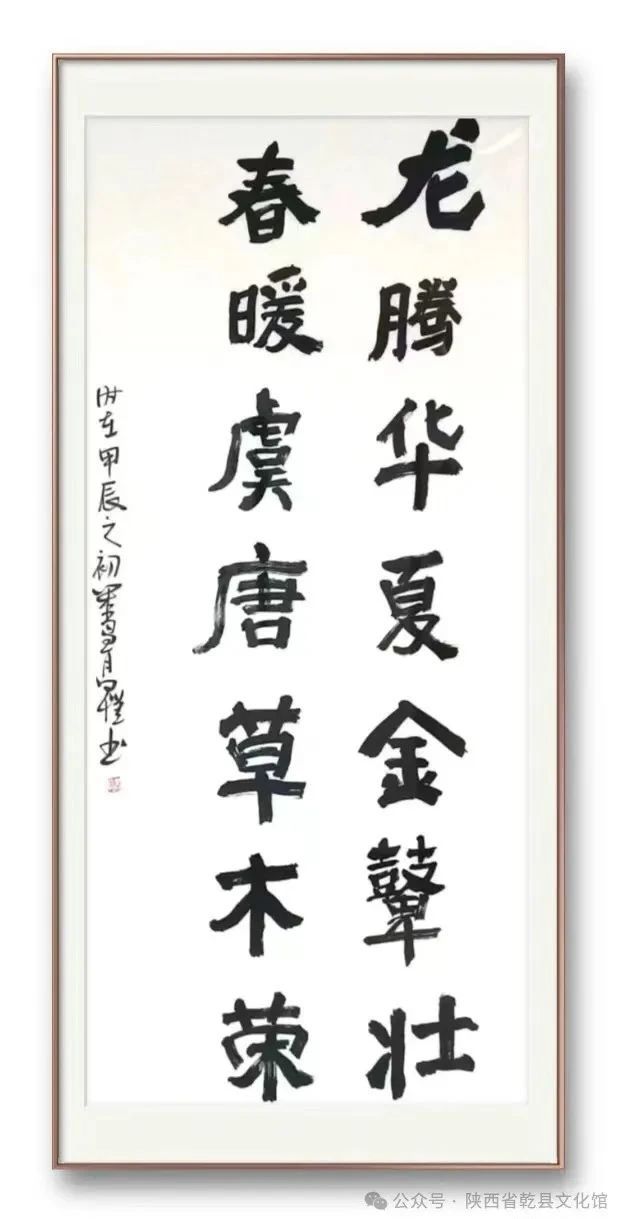 龙腾华夏金鼙壮
春暖虞唐草木荣
时在甲辰之初 书
公众号·陕西省乾县文化馆